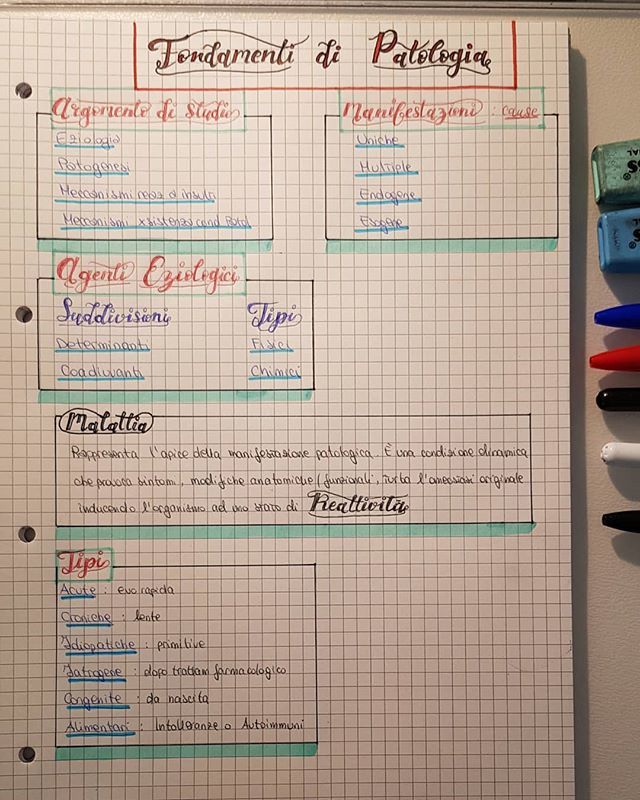 Fondamenti di Patologia
Argomento di studio
Eziologia
Patogenesi
Meccanismi reaz a insulti
Meccanismi x sistenza cond Patol
Manifestazioni : cause
Uniche
Multiple
Endogene
Esogene
Agenti Eziologici
Suddivisioni
Determinanti
Coadiuvanti
Tipi
Fisici
Chimici
Malattia
Rappresenta l'apice della manifestazione patologica. È una condizione dinamica
che provoca sintomi, modifiche anatomiche / funzionali, turba l'omeostasi originale
inducendo l'organismo ad uno stato di Reattività
Tipi
Acute : evo rapida
Croniche : lente
Idiopatiche : primitive
Iatrogene : dopo trattam farmacologico
Congenite : da nascita
Alimentari : Intolleranze o Autoimmuni